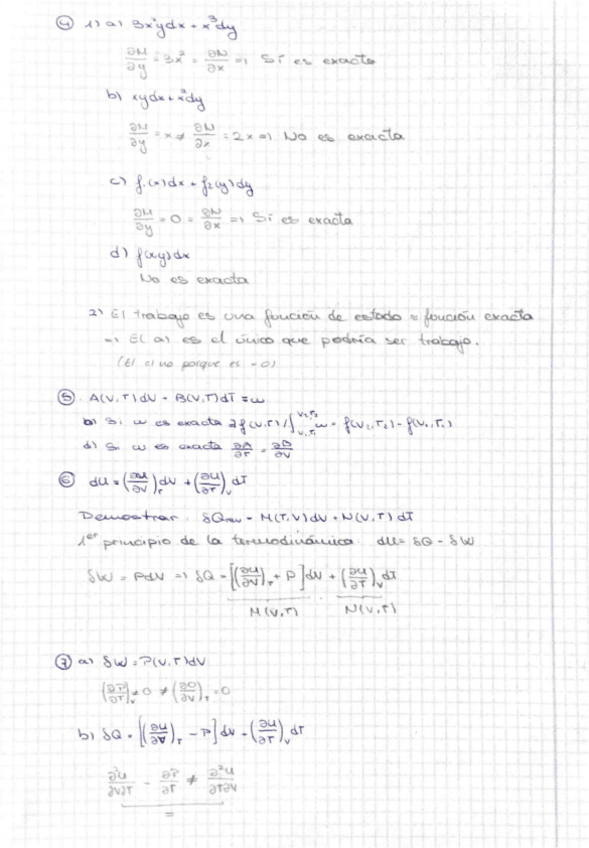 ④ 1) a) 3x²ydx + x³dy
∂M/∂y = 3x² = ∂N/∂x => Sí es exacta
b) xydx + x²dy
∂M/∂y = x ≠ ∂N/∂x = 2x => No es exacta
c) f₁(x)dx + f₂(y)dy
∂M/∂y = 0 = ∂N/∂x => Sí es exacta
d) f(x,y)dx
No es exacta
2) El trabajo es una función de estado = función exacta
=> El a) es el único que podría ser trabajo.
(El c) no porque es = 0)
⑤ A(V,T)dV + B(V,T)dT = ω
b) Si ω es exacta ∃ f(V,T) / ∫ω = f(V₂,T₂) - f(V₁,T₁)
d) Si ω es exacta ∂A/∂T = ∂B/∂V
⑥ dU = (∂U/∂V)_T dV + (∂U/∂T)_V dT
Demostrar: δQrev = M(T,V)dV + N(V,T)dT
1er principio de la termodinámica: dU = δQ - δW
δW = PdV => δQ = [(∂U/∂V)_T + P]dV + (∂U/∂T)_V dT
M(V,T) N(V,T)
⑦ a) δW = P(V,T)dV
(∂P/∂T)_V ≠ 0 ≠ (∂0/∂V)_T = 0
b) δQ = [(∂U/∂V)_T - P]dV - (∂U/∂T)_V dT
∂²U/∂V∂T - ∂P/∂T ≠ ∂²U/∂T∂V
=